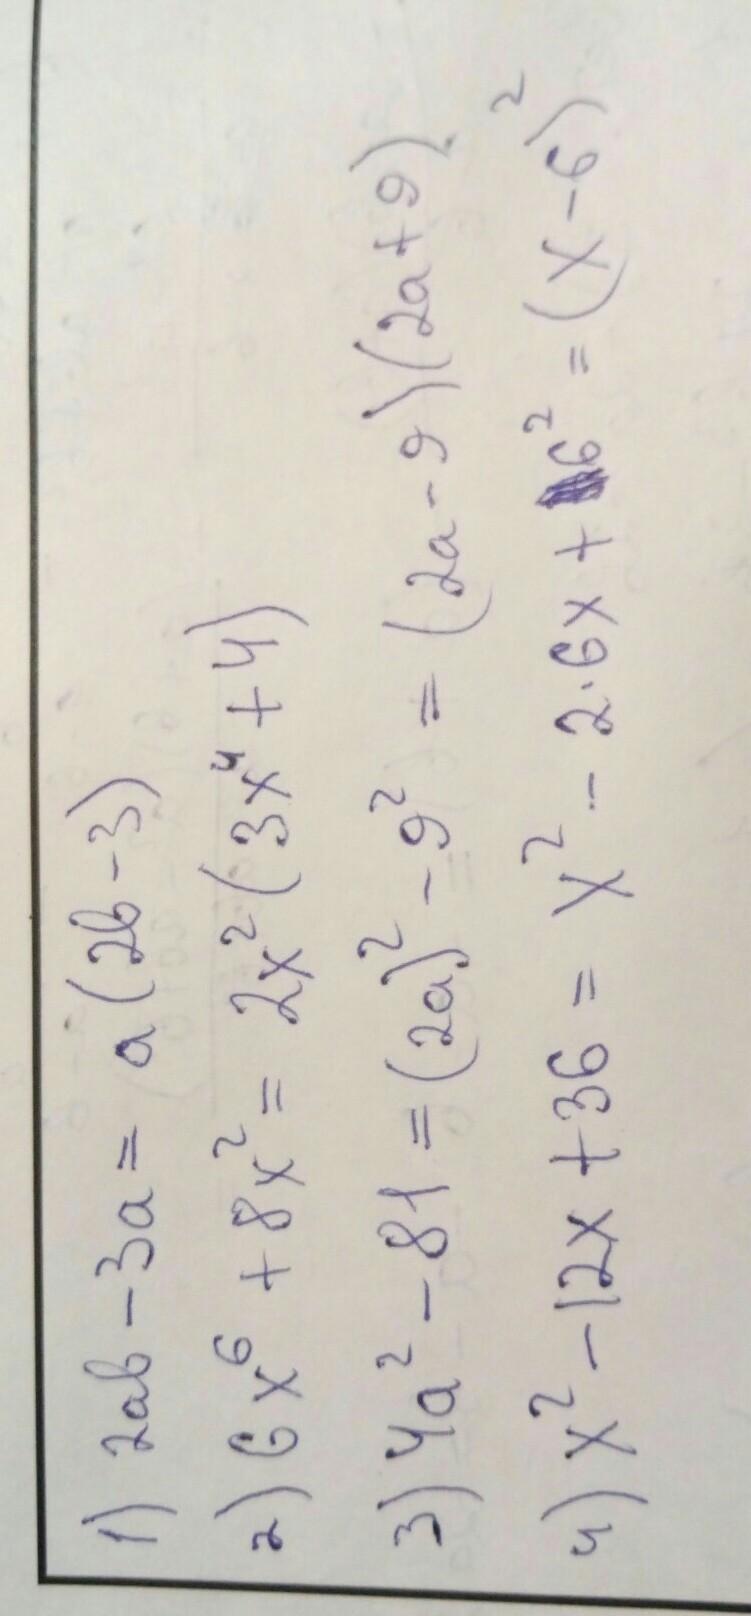 1) 2ab - 3a = a(2b - 3)
2) 6x⁶ + 8x² = 2x²(3x⁴ + 4)
3) 4a² - 81 = (2a)² - 9² = (2a - 9)(2a + 9)
4) x² - 12x + 36 = x² - 2·6x + 6² = (x - 6)²